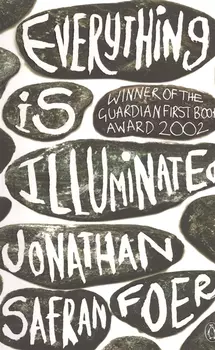 EVERYTHING
iS
WINNER OF THE
GUARDIAN FIRST BOOK
AWARD 2002
ILLUMiNATED
JONATHAN
SAFRAN FOER